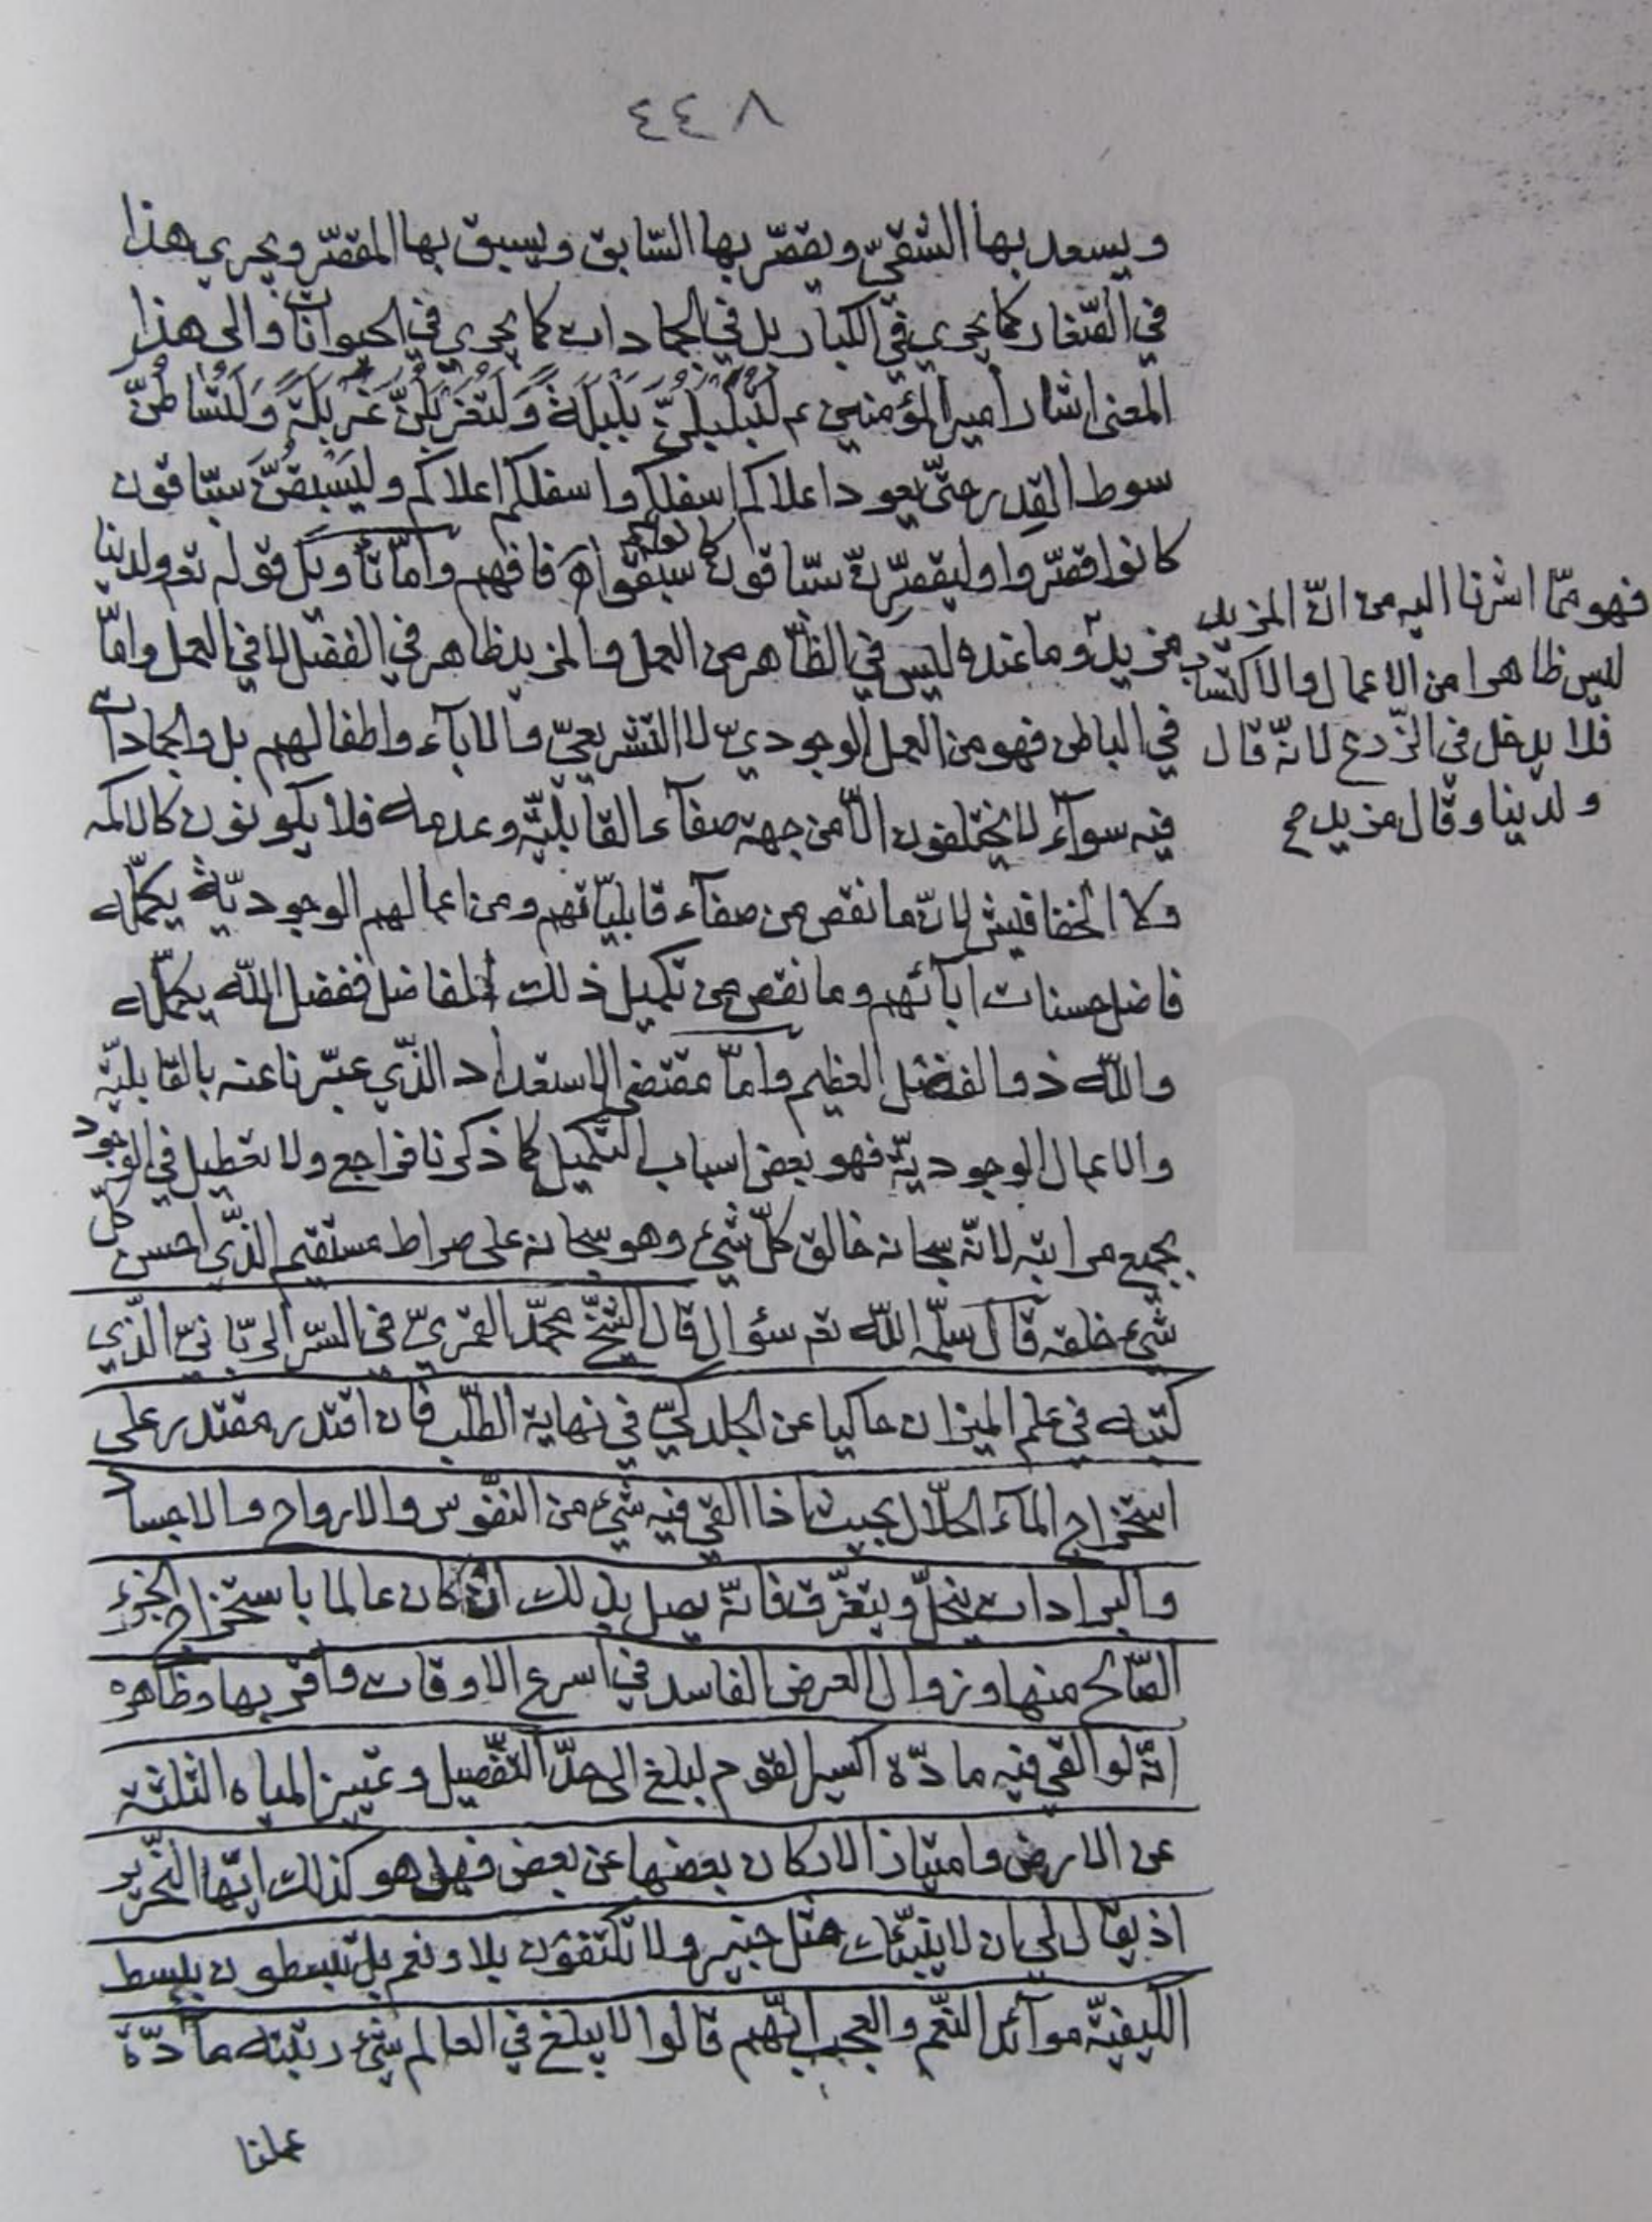 ٤٤٨
ويسعد بها الشقيّ ويقصّر بها السّابق ويسبق بها المقصّر ويجري هذا
في الصّغار كما يجري في الكبار بل في الجمادات كما يجري في الحيوانات والى هذا
المعنى اشار امير المؤمنين ع لَتُبَلْبَلُنَّ بَلْبَلَةً وَلَتُغَرْبَلُنَّ غَرْبَلَةً وَلَتُساطُنَّ
سوط القدر حتّى يعود اعلاكم اسفلكم واسفلكم اعلاكم وليَسْبِقَنَّ سبّاقون
كانوا قصّروا وليقصّرنّ سبّاقون كانوا سبقوا اه فافهم وامّا تأويل قوله تع ولدينا
مزيد وما عنده ليس في الظّاهر من العمل والمزيد ظاهر في الفضل لا في العمل وامّا
في الباطن فهو من العمل الوجوديّ لا التشريعيّ والاباء واطفالهم بل والجمادات
فيه سوآء لا يختلفون الّا من جهة صفآء القابليّة وعدمه فلا يكونون كالاكمه
ولا الخفافيش لانّ ما نقص من صفآء قابليّاتهم ومن اعمالهم الوجوديّة يكمّله
فاضل حسنات ابآئهم وما نقص من تكميل ذلك الفاضل ففضل اللّه يكمّله
واللّه ذو الفضل العظيم وامّا مقتضى الاستعداد الذّي عبّرنا عنه بالقابليّة
والاعمال الوجوديّة فهو بعض اسباب التّكميل كما ذكرنا فراجع ولا تعطيل في الوجود
بجميع مراتبه لانّه سبحانه خالق كلّ شيء وهو سبحانه على صراط مستقيم الذّي احسن كلّ
شيء خلقه قال سلّمه اللّه تع سؤال قال الشّيخ محمّد القمريّ في السّر الربّانيّ الذّي
كتبه في علم الميزان حاكيا عن الجلدكيّ في نهاية الطّلب فان اقتدر مقتدر على
استخراج المآء الحلّال بحيث اذا القي فيه شيء من النفّوس والارواح والاجساد
والبرادات ينحلّ ويتفرّق فانّه يصل بذلك ان كان عالما باستخراج الجزء
الصّالح منها وزوال العرض الفاسد في اسرع الاوقات واقربها وظاهره
انّه لو القي فيه مادّة اكسير القوم لبلغ الى حدّ التفّصيل وتمييز المياه الثلثة
عن الارض وامتياز الاركان بعضها عن بعض فهل هو كذلك ايّها النحّرير
اذ يقال لي بان لا ينبّئك مثل خبير ولا تكتفون بلا ونعم بل تبسطون ببسط
الكيفيّة موآئد النّعم والعجب انّهم قالوا لا يبلغ في العالم شيء رتبته مادّة
عملنا
فهو ممّا اشرنا اليه من انّ المزيد
ليس ظاهرا من الاعمال والاكتساب
فلا يدخل في الزّرع لانّه قال
ولدينا وقال مزيد صح